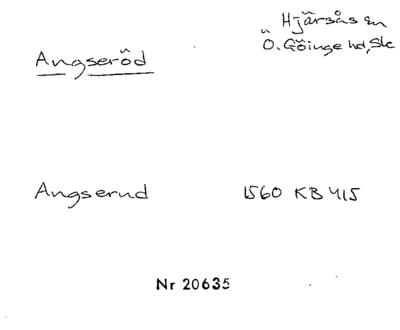 Hjärsås sn
Ö. Göinge hd, Sk
Angseröd
Angserud 1560 KB 415
Nr 20635